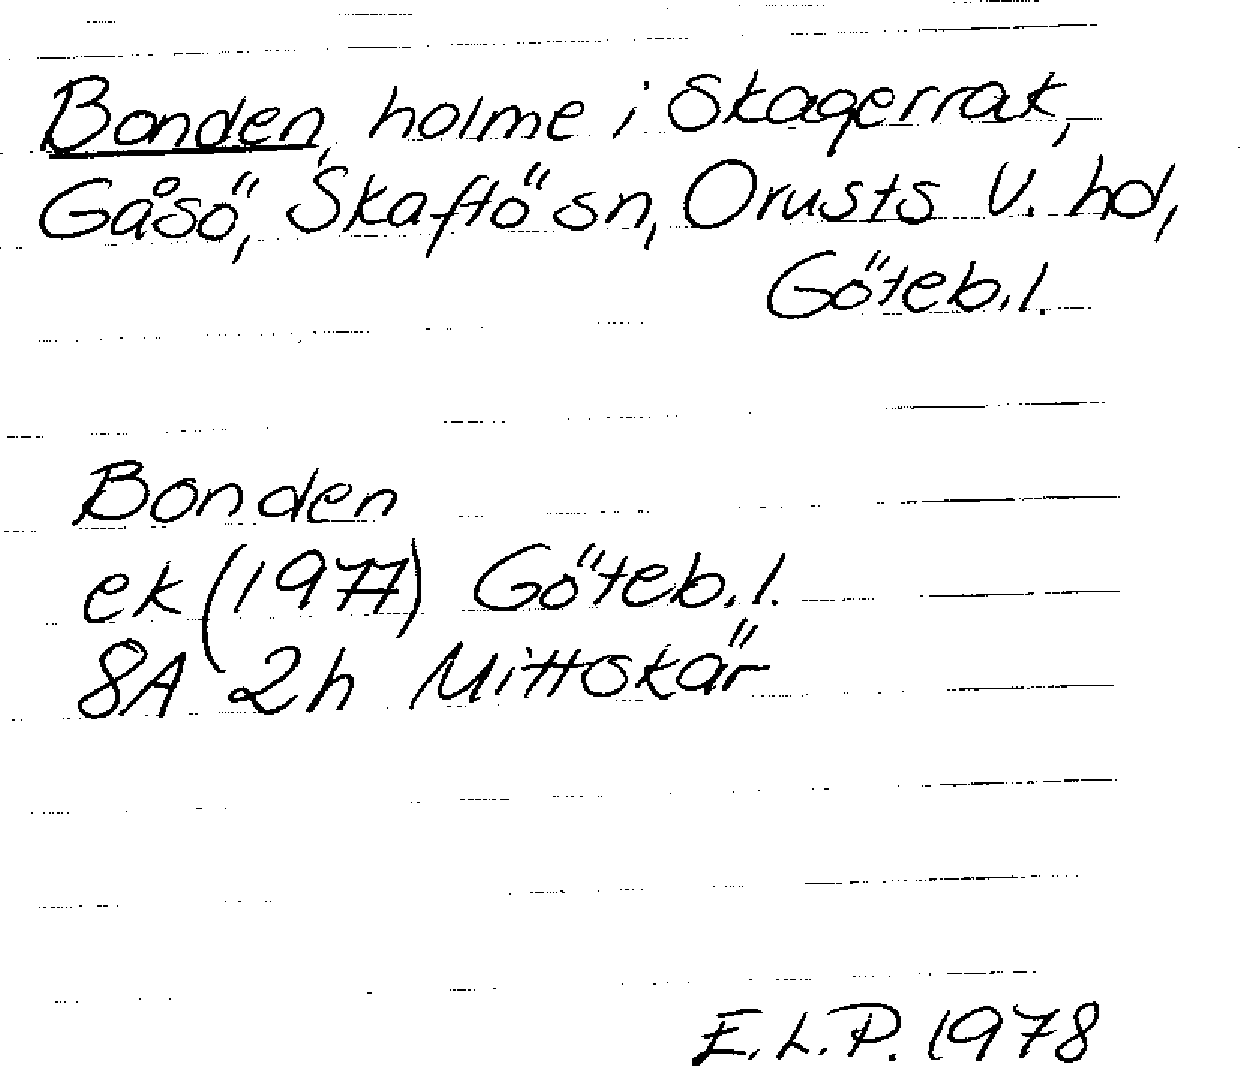 Bonden, holme i Skagerrak,
Gåsö, Skaftö sn, Orusts V. hd,
Göteb.l.
Bonden
ek (1977) Göteb.l.
8A 2h Mittskär
E.L.P. 1978